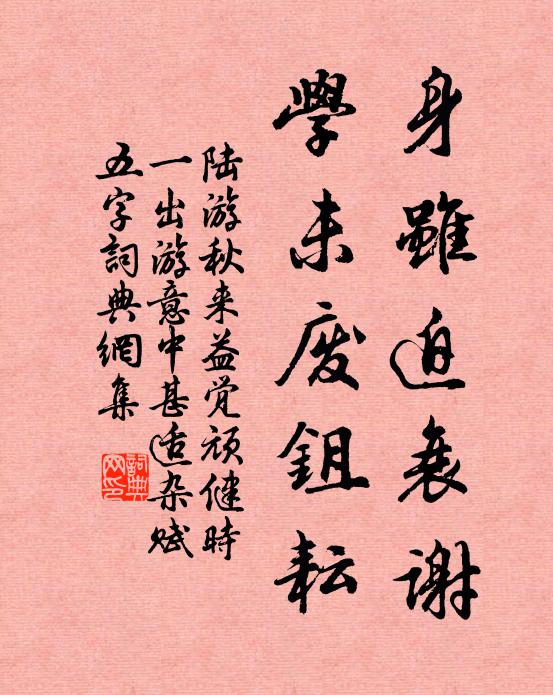 身雖迫衰謝
學未废鉏耘
陆游秋来益觉顽健時
一出游意中甚适杂赋
五字詞典網集
詞典
网印